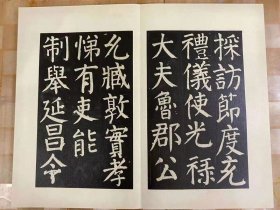 採訪節度充
禮儀使光祿
大夫魯郡公
允臧敦實孝
悌有吏能
制舉延昌令